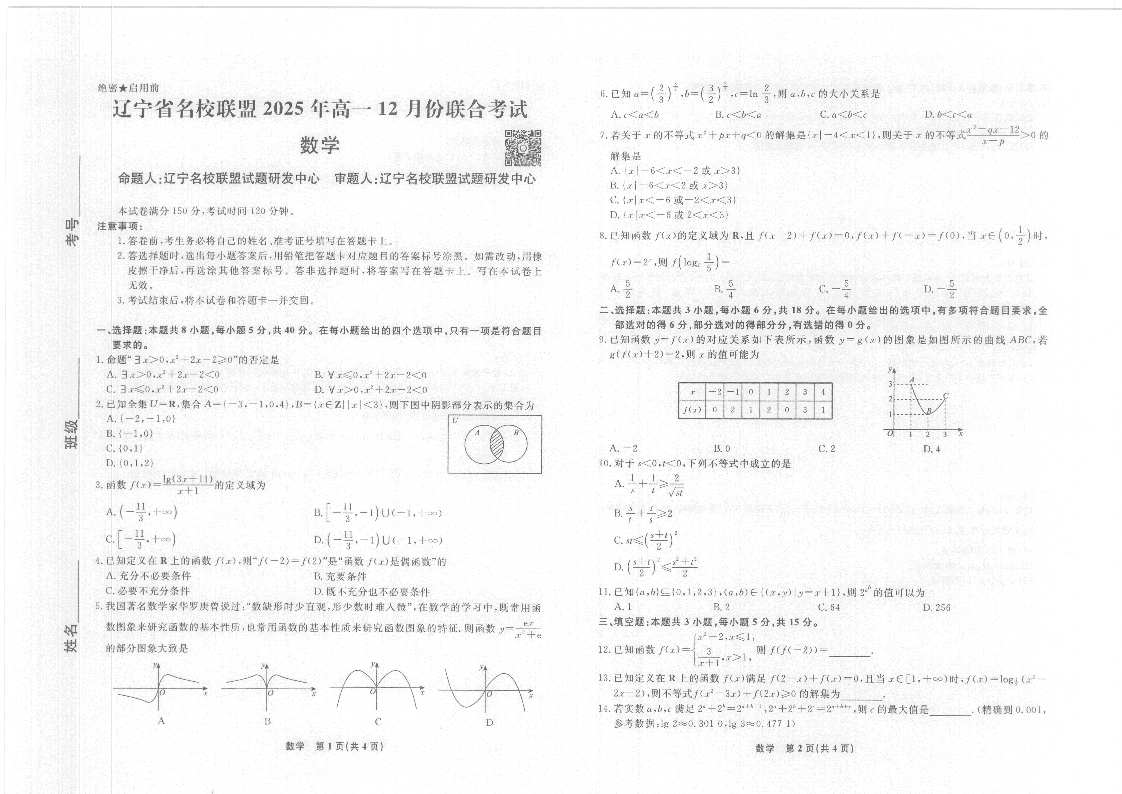 绝密★启用前
辽宁省名校联盟2025年高一12月份联合考试
数学
命题人:辽宁名校联盟试题研发中心 审题人:辽宁名校联盟试题研发中心
本试卷满分150分,考试时间120分钟。
注意事项:
1.答卷前,考生务必将自己的姓名、准考证号填写在答题卡上。
2.答选择题时,选出每小题答案后,用铅笔把答题卡对应题目的答案标号涂黑。如需改动,用橡
皮擦干净后,再选涂其他答案标号。答非选择题时,将答案写在答题卡上。写在本试卷上
无效。
3.考试结束后,将本试卷和答题卡一并交回。
一、选择题:本题共8小题,每小题5分,共40分。在每小题给出的四个选项中,只有一项是符合题目
要求的。
1.命题“∃x>0,x²+2x-2≥0”的否定是
A.∃x>0,x²+2x-2<0 B.∀x≤0,x²+2x-2<0
C.∃x≤0,x²+2x-2<0 D.∀x>0,x²+2x-2<0
2.已知全集U=R,集合A={-3,-1,0,4},B={x∈Z||x|<3},则下图中阴影部分表示的集合为
A.{-2,-1,0}
B.{-1,0}
C.{0,1}
D.{0,1,2}
U A B
3.函数f(x)=lg(3x+11)/(x+1)的定义域为
A.(-11/3,+∞) B.[-11/3,-1)∪(-1,+∞)
C.[-11/3,+∞) D.(-11/3,-1)∪(-1,+∞)
4.已知定义在R上的函数f(x),则“f(-2)=f(2)”是“函数f(x)是偶函数”的
A.充分不必要条件 B.充要条件
C.必要不充分条件 D.既不充分也不必要条件
5.我国著名数学家华罗庚曾说过:“数缺形时少直观,形少数时难入微”,在数学的学习中,既常用函
数图象来研究函数的基本性质,也常用函数的基本性质来研究函数图象的特征.则函数y=ex/(x²+e)
的部分图象大致是
A B C D
数学 第1页(共4页)
考号
班级
姓名
6.已知c=ln 2/3,则a,b,c的大小关系是
A.c<a<b B.c<b<a C.a<b<c D.b<c<a
7.若关于x的不等式x²+px+q<0的解集是{x|-4<x<1},则关于x的不等式(x²-qx-12)/(x-p)>0的
解集是
A.{x|-6<x<-2或x>3}
B.{x|-6<x<2或x>3}
C.{x|x<-6或-2<x<3}
D.{x|x<-6或2<x<3}
8.已知函数f(x)的定义域为R,且f(x-2)+f(x)=0,f(x)+f(-x)=f(0),当x∈(0,1/2)时,
A.5/2 B.5/4 C.-5/4 D.-5/2
二、选择题:本题共3小题,每小题6分,共18分。在每小题给出的选项中,有多项符合题目要求,全
部选对的得6分,部分选对的得部分分,有选错的得0分。
9.已知函数y=f(x)的对应关系如下表所示,函数y=g(x)的图象是如图所示的曲线ABC,若
g(f(x)+2)=2,则x的值可能为
x -2 -1 0 1 2 3 4
f(x) 0 2 1 2 0 3 1
y 3 2 1 O 1 2 3 x A B C
A.-2 B.0 C.2 D.4
10.对于s<0,t<0,下列不等式中成立的是
A.1/s+1/t≥2/√st
B.s/t+t/s≥2
C.st≤((s+t)/2)²
D.((s+t)/2)²≤(s²+t²)/2
11.已知{a,b}⊆{0,1,2,3},(a,b)∈{(x,y)|y=x+1},则2^(a^b)的值可以为
A.1 B.2 C.64 D.256
三、填空题:本题共3小题,每小题5分,共15分。
12.已知函数f(x)={x²-2,x≤1, 3/(x+1),x>1, 则f(f(-2))=______.
13.已知定义在R上的函数f(x)满足f(2-x)+f(x)=0,且当x∈[1,+∞)时,
2x-2),则不等式f(x²-3x)+f(2x)≥0的解集为______.
14.若实数a,b,c满足2^a+2^b=2^(a+b-1),2^a+2^b+2^c=2^(a+b+c),则c的最大值是______.(精确到0.001,
参考数据:lg 2≈0.301 0,lg 3≈0.477 1)
数学 第2页(共4页)